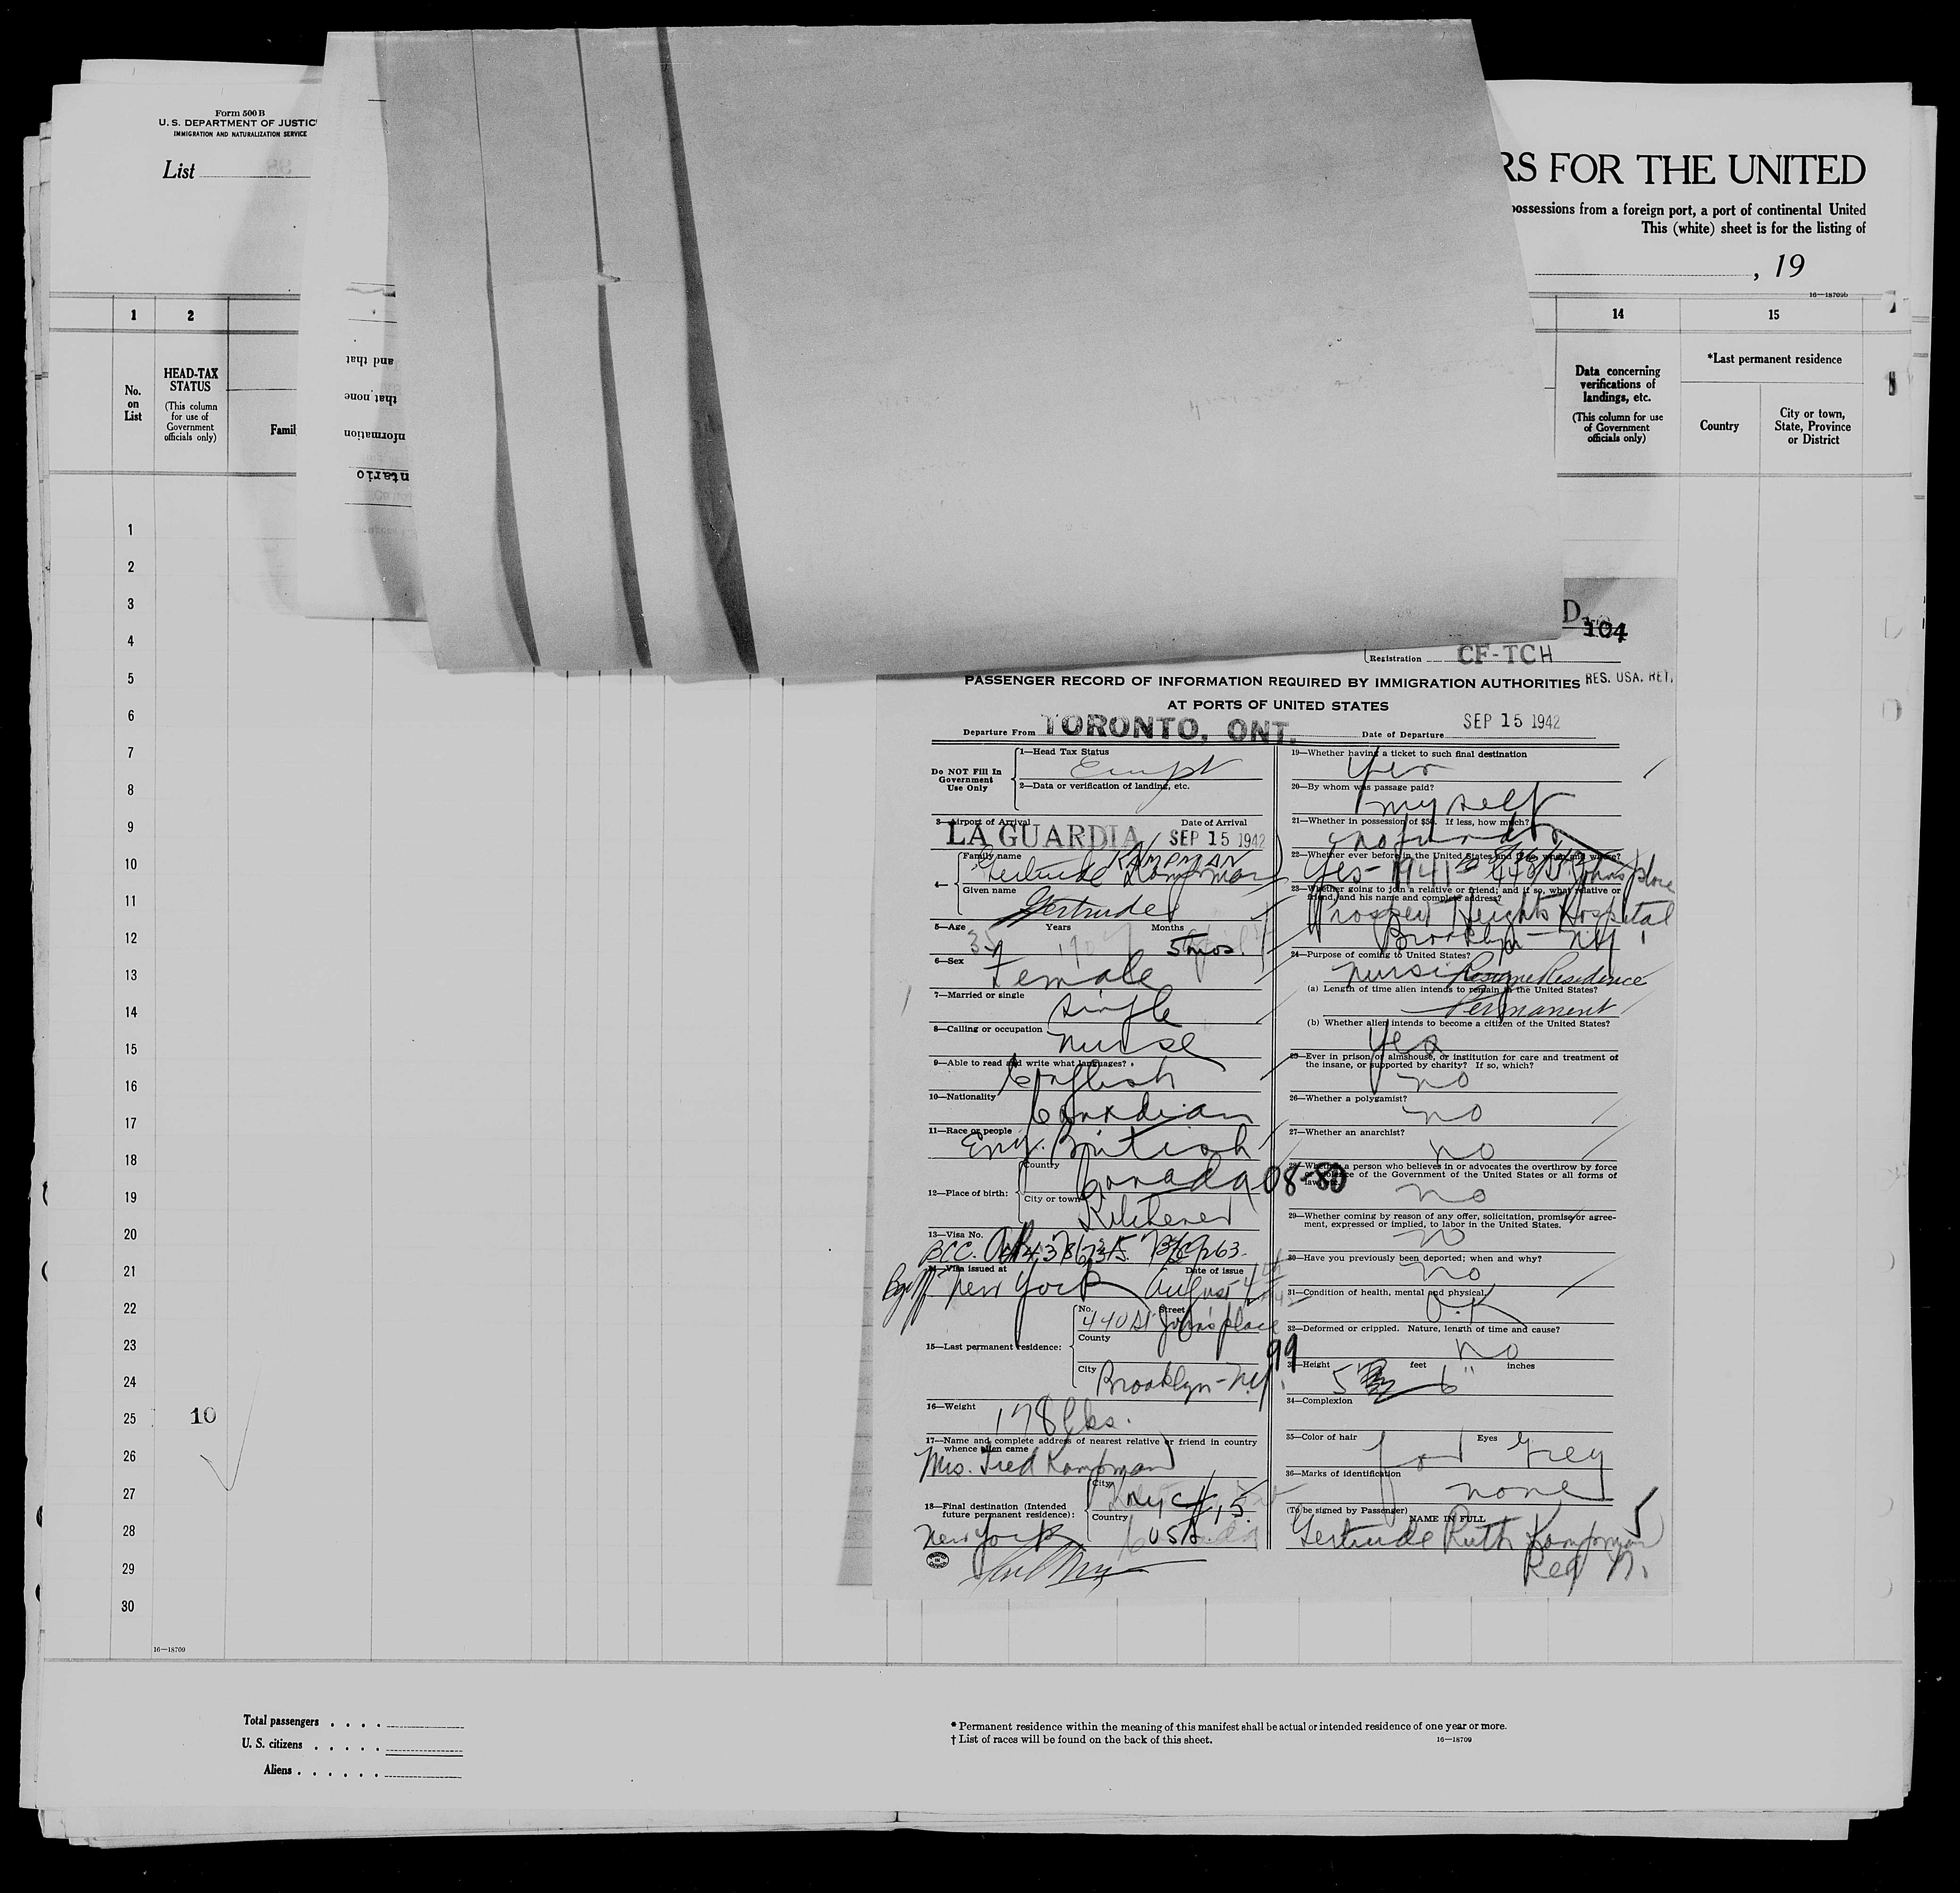 Form 500 B
U. S. DEPARTMENT OF JUSTIC
IMMIGRATION AND NATURALIZATION SERVICE
List
RS FOR THE UNITED
possessions from a foreign port, a port of continental United
This (white) sheet is for the listing of
, 19
16—18709b
1
2
14
15
No.
on
List
HEAD-TAX
STATUS
(This column
for use of
Government
officials only)
Famil
Data concerning
verifications of
landings, etc.
(This column for use
of Government
officials only)
*Last permanent residence
Country
City or town,
State, Province
or District
and that
that none
nformation
ntario
1
2
3
4
5
6
7
8
9
10
11
12
13
14
15
16
17
18
19
20
21
22
23
24
25
10
26
27
28
29
30
16—18709
D
104
Registration CF-TCH
PASSENGER RECORD OF INFORMATION REQUIRED BY IMMIGRATION AUTHORITIES RES. USA. RET.
AT PORTS OF UNITED STATES
Departure From TORONTO, ONT.
Date of Departure SEP 15 1942
Do NOT Fill In
Government
Use Only
1—Head Tax Status
2—Data or verification of landing, etc.
3—Airport of Arrival LA GUARDIA
Date of Arrival SEP 15 1942
4—
Family name KAMPMAN
Gertrude Kampman
Given name
Gertrude
5—Age 35 Years Months 5 mos.
6—Sex Female
7—Married or single single
8—Calling or occupation nurse
9—Able to read and write what languages?
English
10—Nationality Canadian
11—Race or people
Eng. British
12—Place of birth:
Country Canada 08-80
City or town Kitchener
13—Visa No.
BCC.
14—Visa issued at New York
Date of issue August 4th
15—Last permanent residence:
No. Street
440 St John's place
County
99
City Brooklyn - N.Y.
16—Weight 178 lbs.
17—Name and complete address of nearest relative or friend in country
whence alien came
Mrs. Fred Kampman
18—Final destination (Intended
future permanent residence):
City NYC
Country USA
New York
19—Whether having a ticket to such final destination
Yes
20—By whom was passage paid?
myself
21—Whether in possession of $50. If less, how much?
22—Whether ever before in the United States and if so, when and where?
Yes - 1941 440 St. Johns place
23—Whether going to join a relative or friend; and if so, what relative or
friend, and his name and complete address?
Prospect Heights Hospital
Brooklyn - NY
24—Purpose of coming to United States?
nursing Resume Residence
(a) Length of time alien intends to remain in the United States?
Permanent
(b) Whether alien intends to become a citizen of the United States?
Yes
25—Ever in prison or almshouse, or institution for care and treatment of
the insane, or supported by charity? If so, which?
no
26—Whether a polygamist?
no
27—Whether an anarchist?
no
28—Whether a person who believes in or advocates the overthrow by force
or violence of the Government of the United States or all forms of
law, etc.
no
29—Whether coming by reason of any offer, solicitation, promise or agree-
ment, expressed or implied, to labor in the United States.
no
30—Have you previously been deported; when and why?
no
31—Condition of health, mental and physical
O.K
32—Deformed or crippled. Nature, length of time and cause?
no
33—Height 5 feet 6" inches
34—Complexion
35—Color of hair
Eyes Grey
36—Marks of identification
none
(To be signed by Passenger)
NAME IN FULL
Gertrude Ruth Kampman
Reg N.
Total passengers . . . .
U. S. citizens . . . . .
Aliens . . . . . .
* Permanent residence within the meaning of this manifest shall be actual or intended residence of one year or more.
† List of races will be found on the back of this sheet.
16—18709